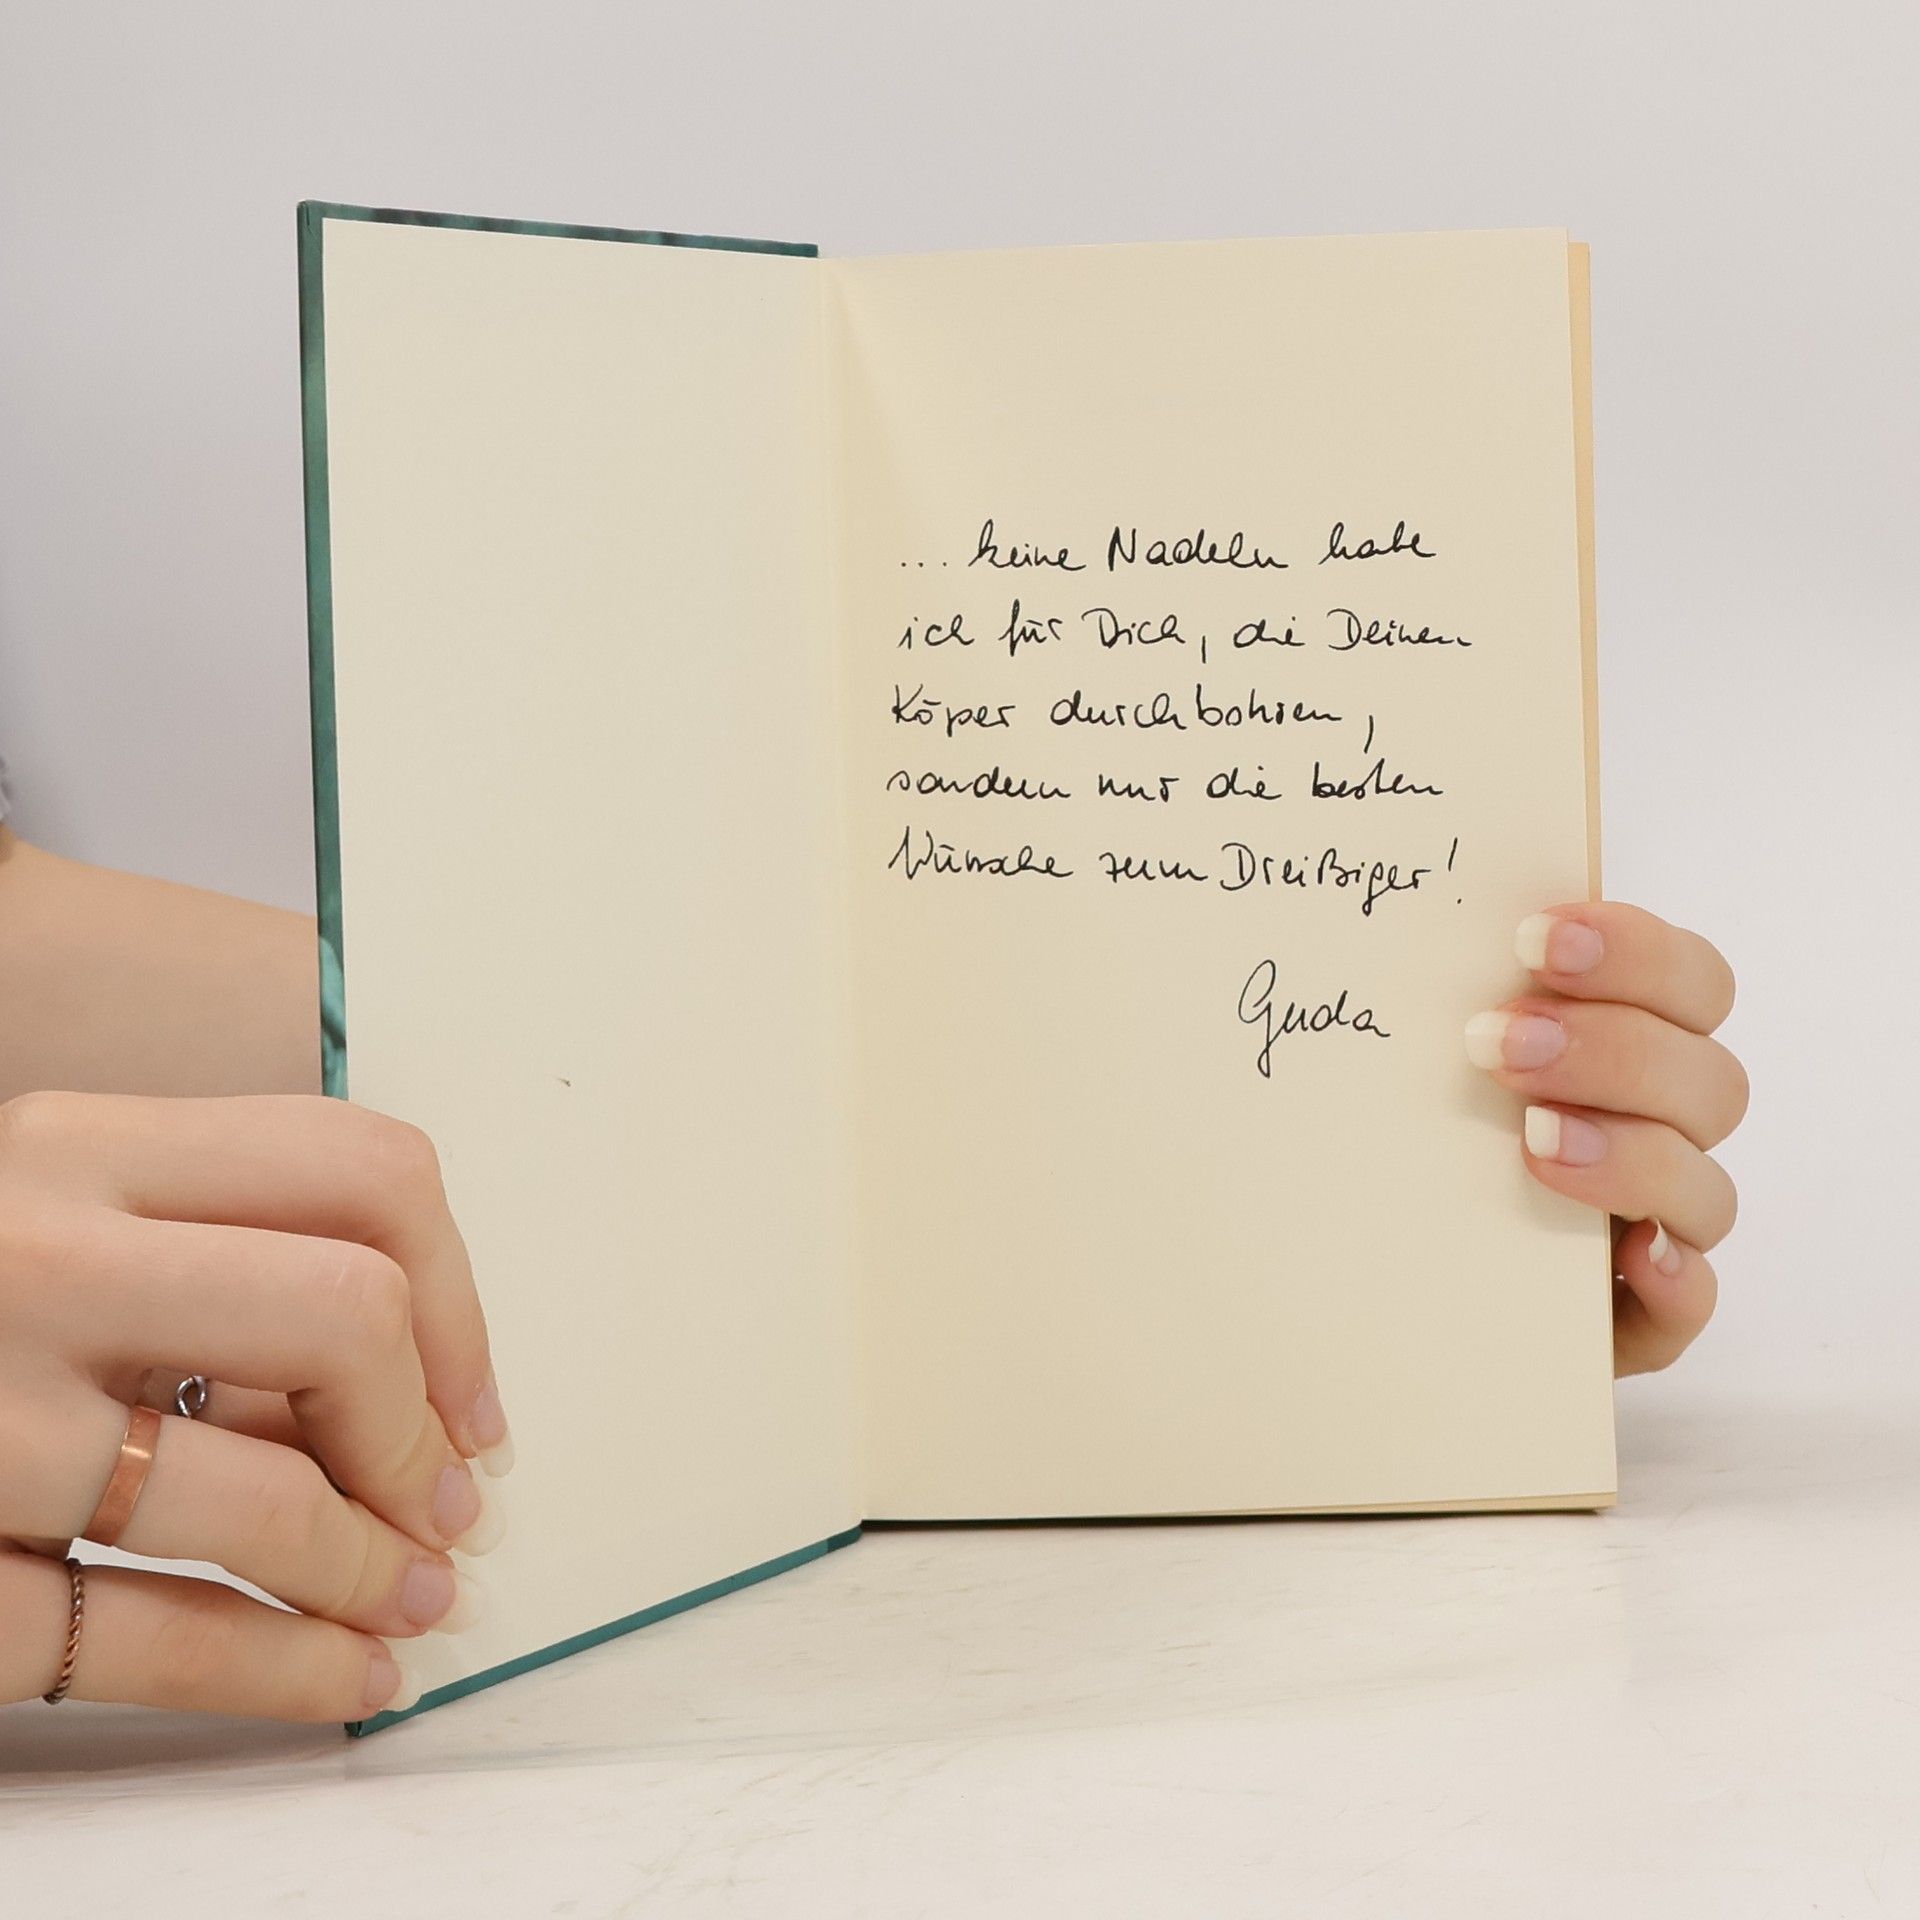 ... keine Nadeln habe
ich für Dich, die Deinen
Köper durchbohren,
sondern nur die besten
Wünsche zum Dreißiger!
Guda